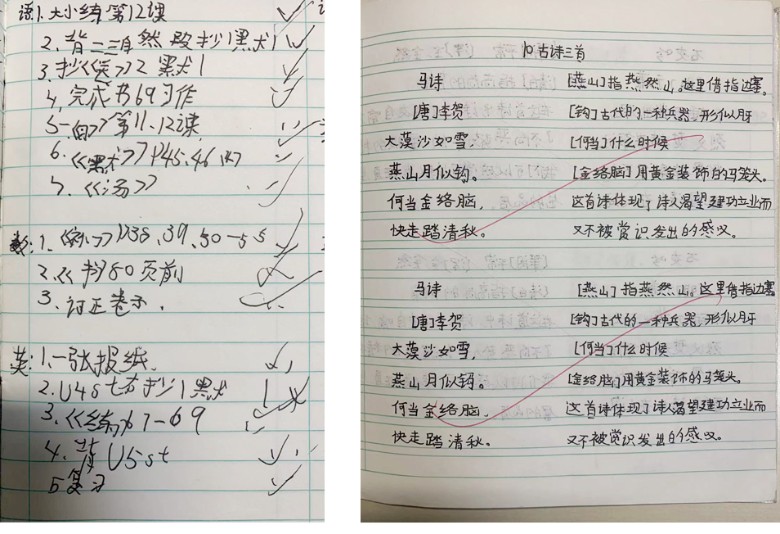 语1.大小练第12课
2.背二三自然段抄1黑尤1
3.抄《》2 黑尤1
4.完成书69习作
5.第11.12课
6.《黑尤》P45.46
7.《汤》
数:1.P38.39.50-55
2.《抄80页前
3.订正卷子.
英:1.一张报纸.
2.U4st方抄1黑尤
3.《练》67-69
4.背U5st
5复习
10.古诗三首
马诗 [燕山]指燕然山。这里借指边塞
[唐]李贺 [钩]古代的一种兵器,形似月牙
大漠沙如雪, [何当]什么时候
燕山月似钩。 [金络脑]用黄金装饰的马笼头。
何当金络脑, 这首诗体现了诗人渴望建功立业而
快走踏清秋。 又不被赏识发出的感叹。
马诗 [燕山]指燕然山。这里借指边塞
[唐]李贺 [钩]古代的一种兵器,形似月牙
大漠沙如雪, [何当]什么时候
燕山月似钩。 [金络脑]用黄金装饰的马笼头。
何当金络脑, 这首诗体现了诗人渴望建功立业而
快走踏清秋。 又不被赏识发出的感叹。